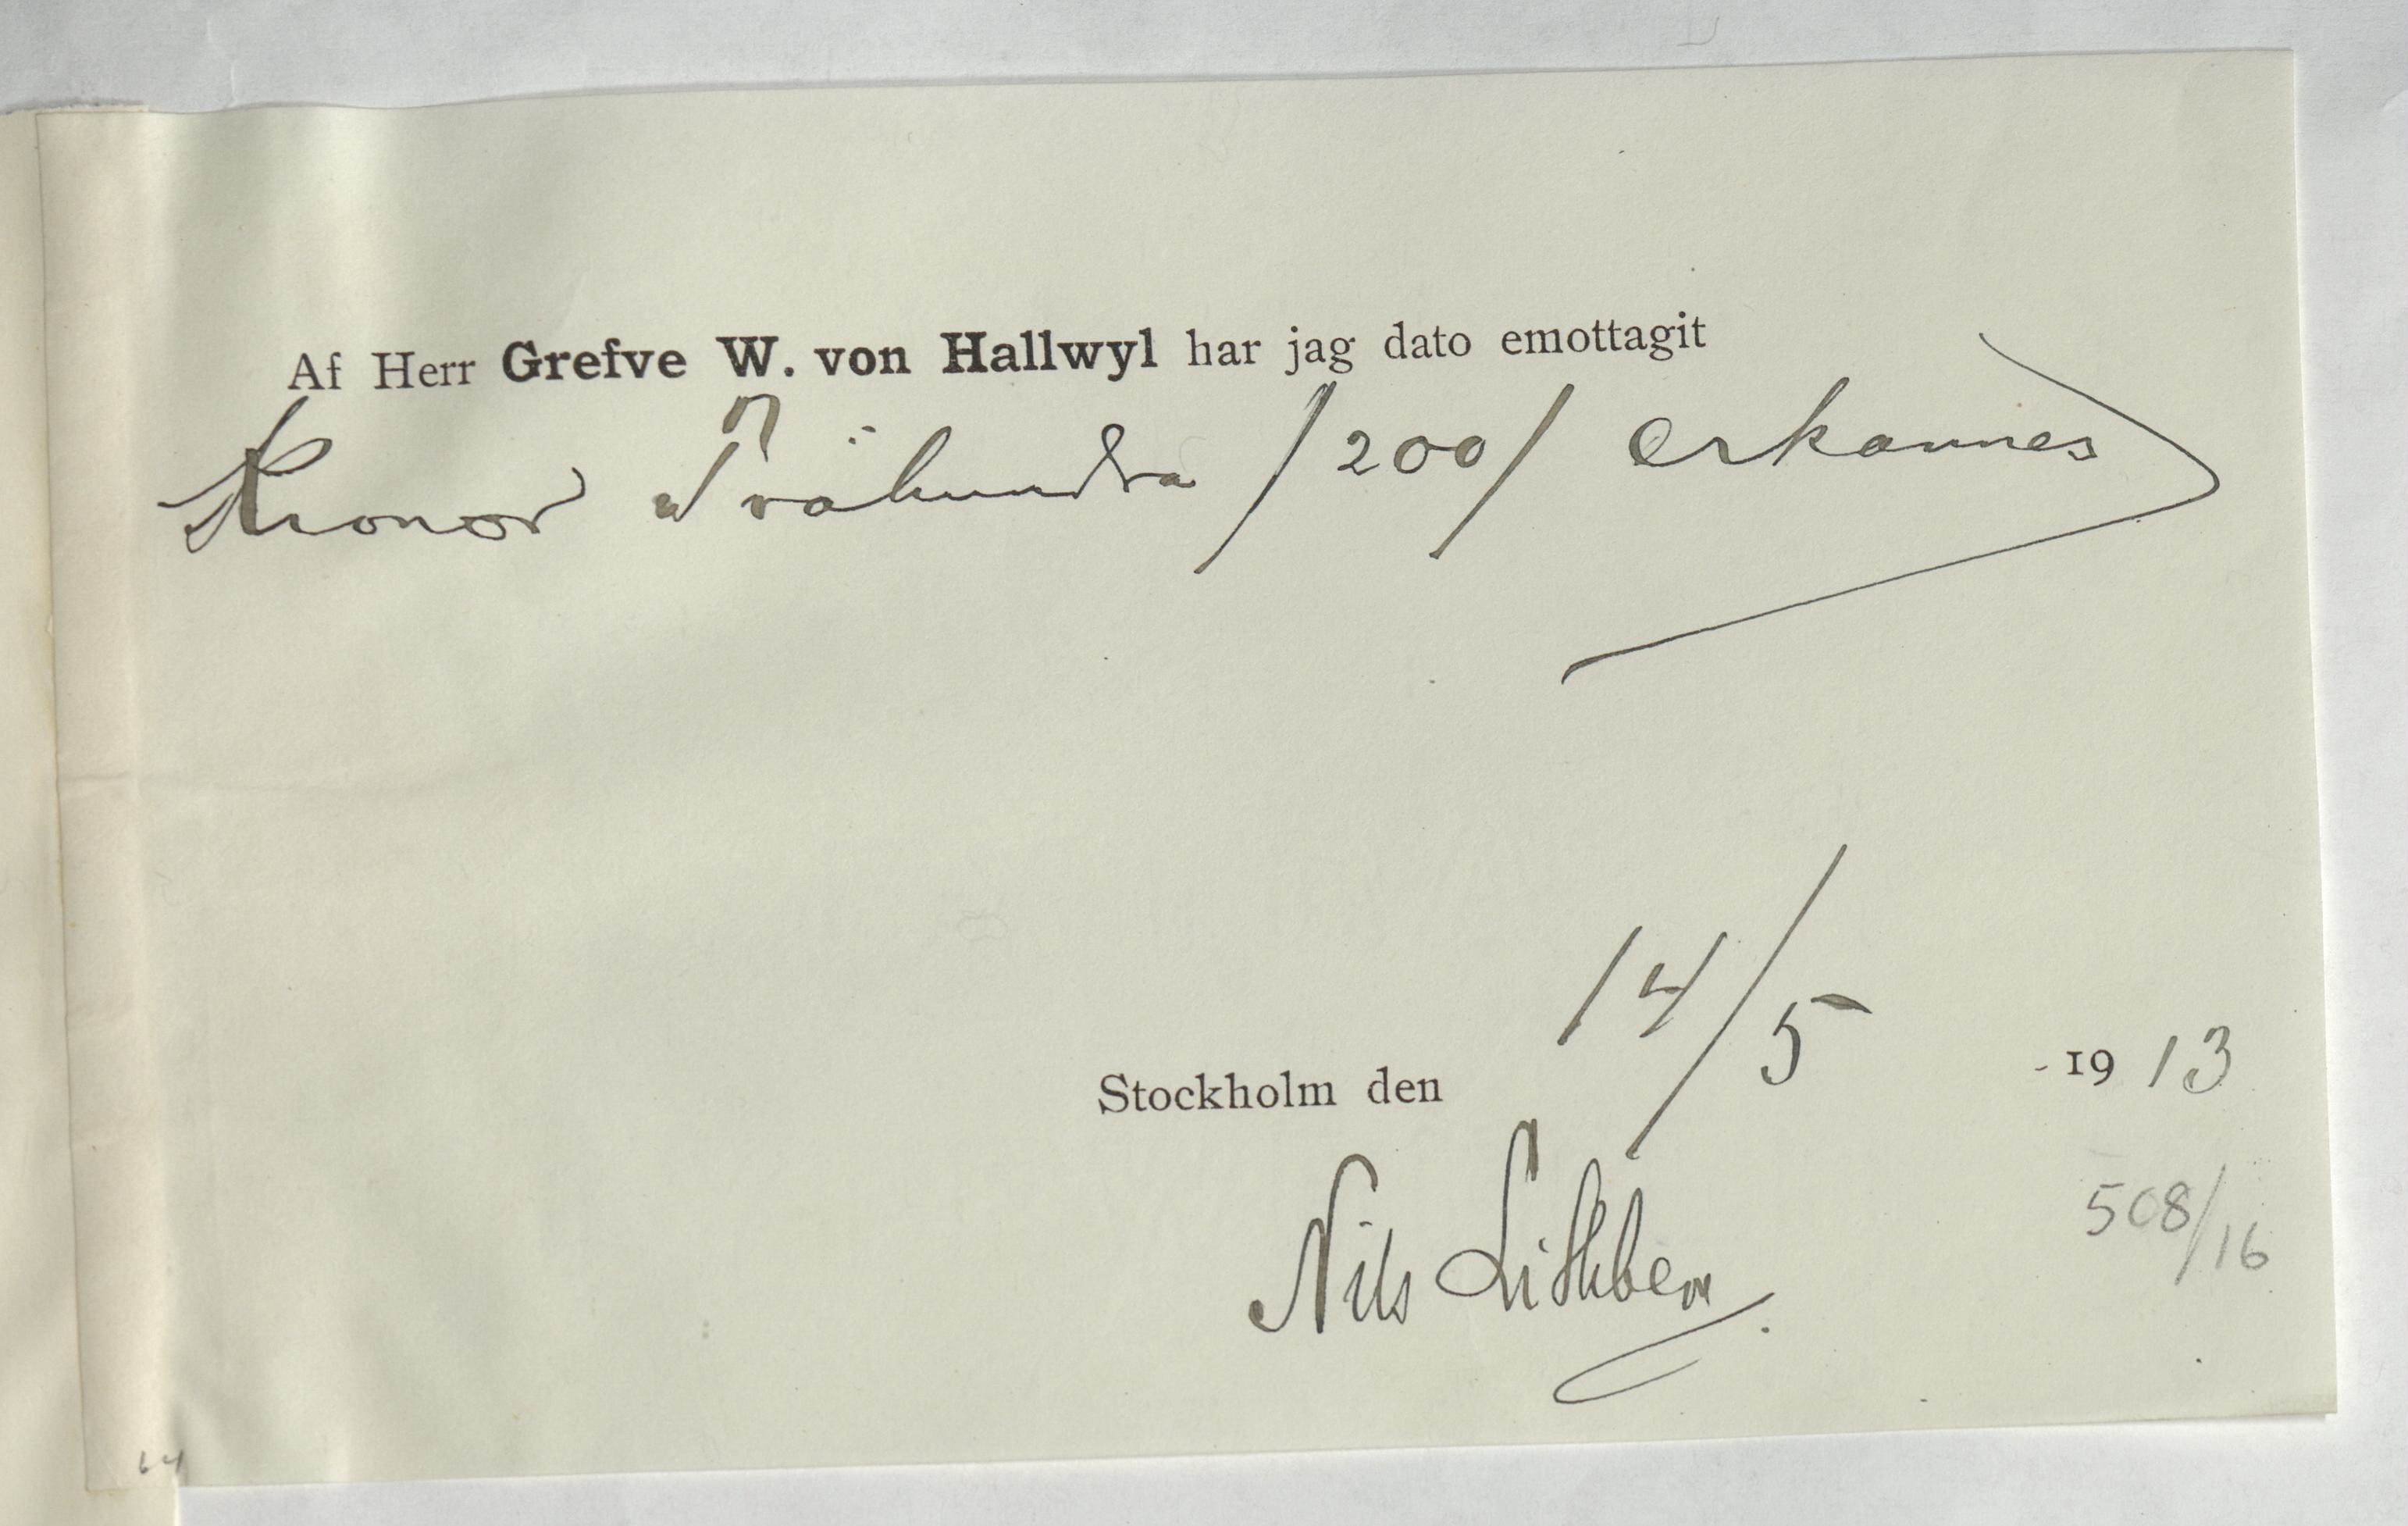 Af Herr Grefve W. von Hallwyl har jag dato emottagit
Kronor Tvåhundra /200/ erkännes
14/5
Stockholm den - 19 13
Nils Lithberg.
508/16
64